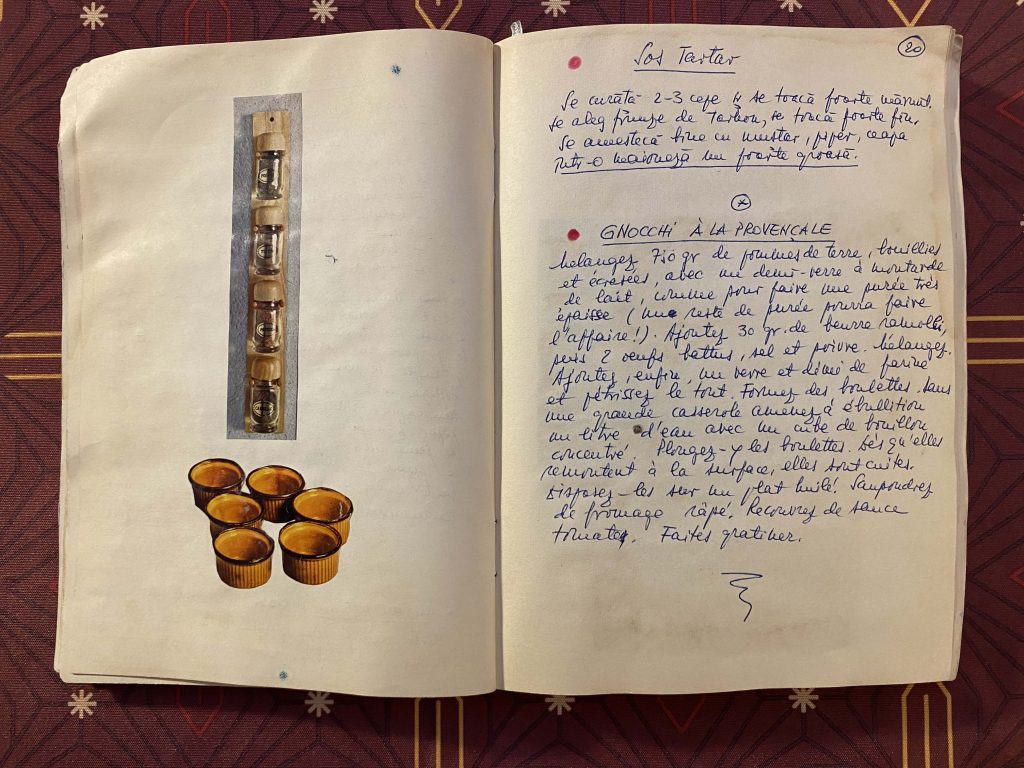 20
Sos Tartar
Se curăță 2-3 cepe și se toacă foarte mărunt.
Se aleg frunze de Tarhon, se toacă foarte fin.
Se amestecă bine cu muștar, piper, ceapa
într-o maioneză nu foarte groasă.
GNOCCHI À LA PROVENÇALE
Mélangez 750 gr de pommes de terre, bouillies
et écrasées, avec un demi-verre à moutarde
de lait, comme pour faire une purée très
épaisse (une reste de purée pourra faire
l'affaire!). Ajoutez 30 gr. de beurre ramolli,
puis 2 oeufs battus, sel et poivre. Mélangez.
Ajoutez, enfin, un verre et demi de farine
et pétrissez le tout. Formez des boulettes. Dans
une grande casserole amenez à ébullition
un litre d'eau avec un cube de bouillon
concentré. Plongez-y les boulettes. Dès qu'elles
remontent à la surface, elles sont cuites.
Disposez-les sur un plat huilé. Saupoudrez
de fromage râpé. Recouvrez de sauce
tomate. Faites gratiner.